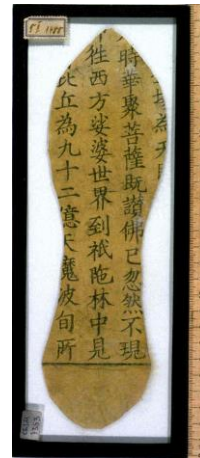 場為天
時華聚菩薩既讚佛已忽然不現
往西方娑婆世界到祇陁林中見
比丘為九十二億天魔波旬所